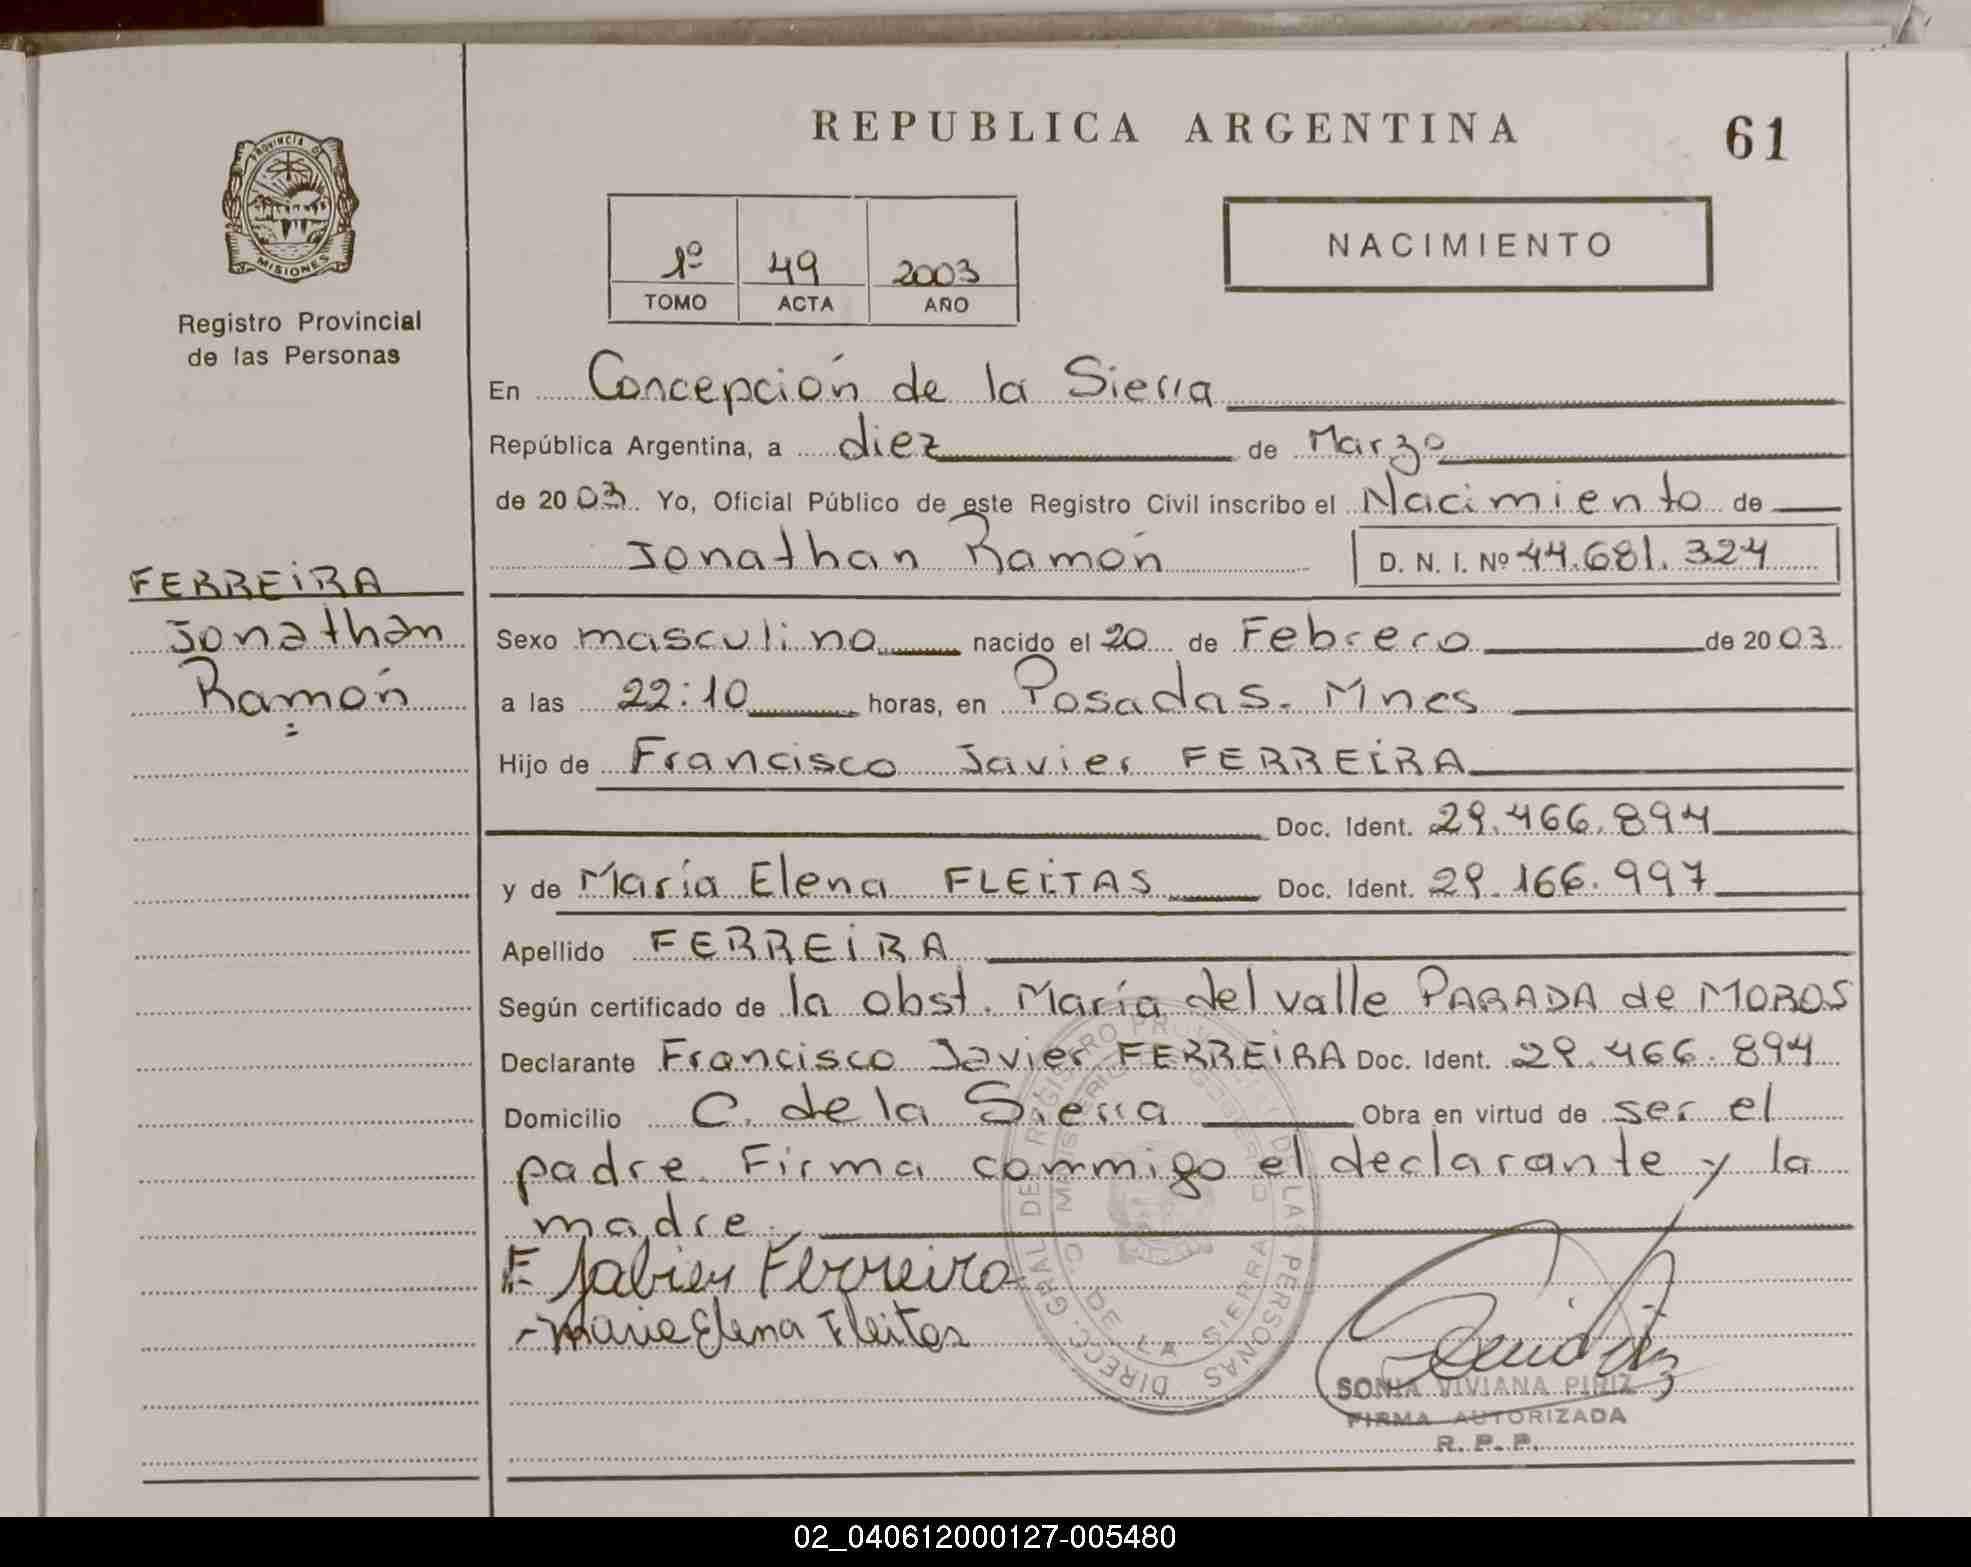 REPUBLICA ARGENTINA
61
PROVINCIA DE
MISIONES
Registro Provincial
de las Personas
1º 49 2003
TOMO ACTA AÑO
NACIMIENTO
En Concepción de la Sierra
República Argentina, a diez de Marzo
de 2003 Yo, Oficial Público de este Registro Civil inscribo el Nacimiento de
Jonathan Ramón D. N. I. Nº 44.681.324
FERREIRA
Jonathan
Ramón
Sexo masculino nacido el 20 de Febrero de 2003
a las 22:10 horas, en Posadas. Mnes
Hijo de Francisco Javier FERREIRA
Doc. Ident. 29.466.894
y de María Elena FLEITAS Doc. Ident. 29.166.997
Apellido FERREIRA
Según certificado de la obst. María del valle PARADA de MOROS
Declarante Francisco Javier FERREIRA Doc. Ident. 29.466.894
Domicilio C. de la Sierra Obra en virtud de ser el
padre. Firma commigo el declarante y la
madre.
F. Jabier Ferreira
Maria Elena Fleitas
DIREC. GRAL DE REGISTRO PROVINCIAL DE LAS PERSONAS
MINISTERIO GOBIERNO
C. DE LA SIERRA
SONIA VIVIANA PIRIZ
FIRMA AUTORIZADA
R. P. P.
02_040612000127-005480